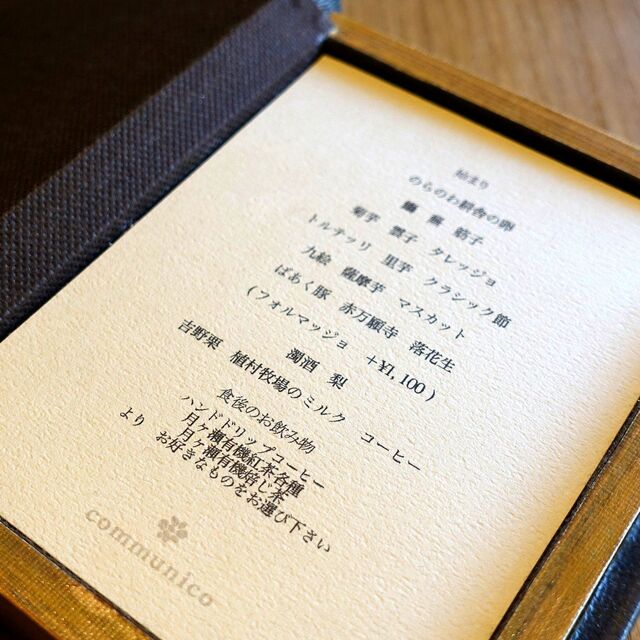 始まり
のらのわ耕舎の卵
トルテッリ 里芋 クラシック館
九絵 薩摩芋 マスカット
ばあく豚 赤万願寺 落花生
(フォルマッジョ +¥1,100)
濁酒 梨
吉野栗 植村牧場のミルク コーヒー
食後のお飲み物
ハンドドリップコーヒー
月ヶ瀬有機紅茶各種
月ヶ瀬有機ほうじ茶
より お好きなものをお選び下さい
communico